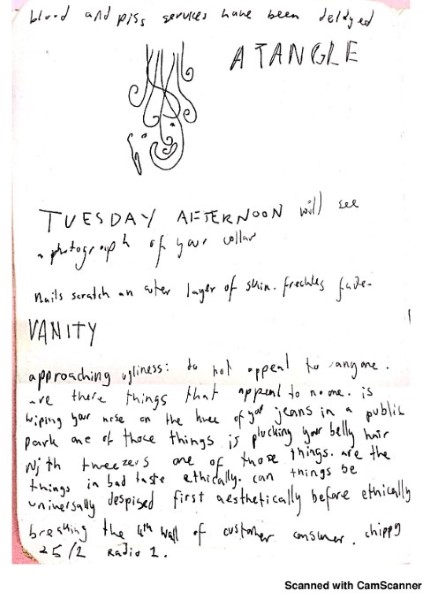 blood and piss services have been delayed
A TANGLE
TUESDAY AFTERNOON will see
a photograph of your collar
nails scratch an outer layer of skin. freckles fade.
VANITY
approaching ugliness: do not appeal to anyone.
are there things that appeal to no one. is
wiping your nose on the knee of your jeans in a public
park one of those things is plucking your belly hair
with tweezers one of those things. are the
things in bad taste ethically. can things be
universally despised first aesthetically before ethically
breaking the 4th wall of customer consumer. chippy
25/2 Radio 1.
Scanned with CamScanner